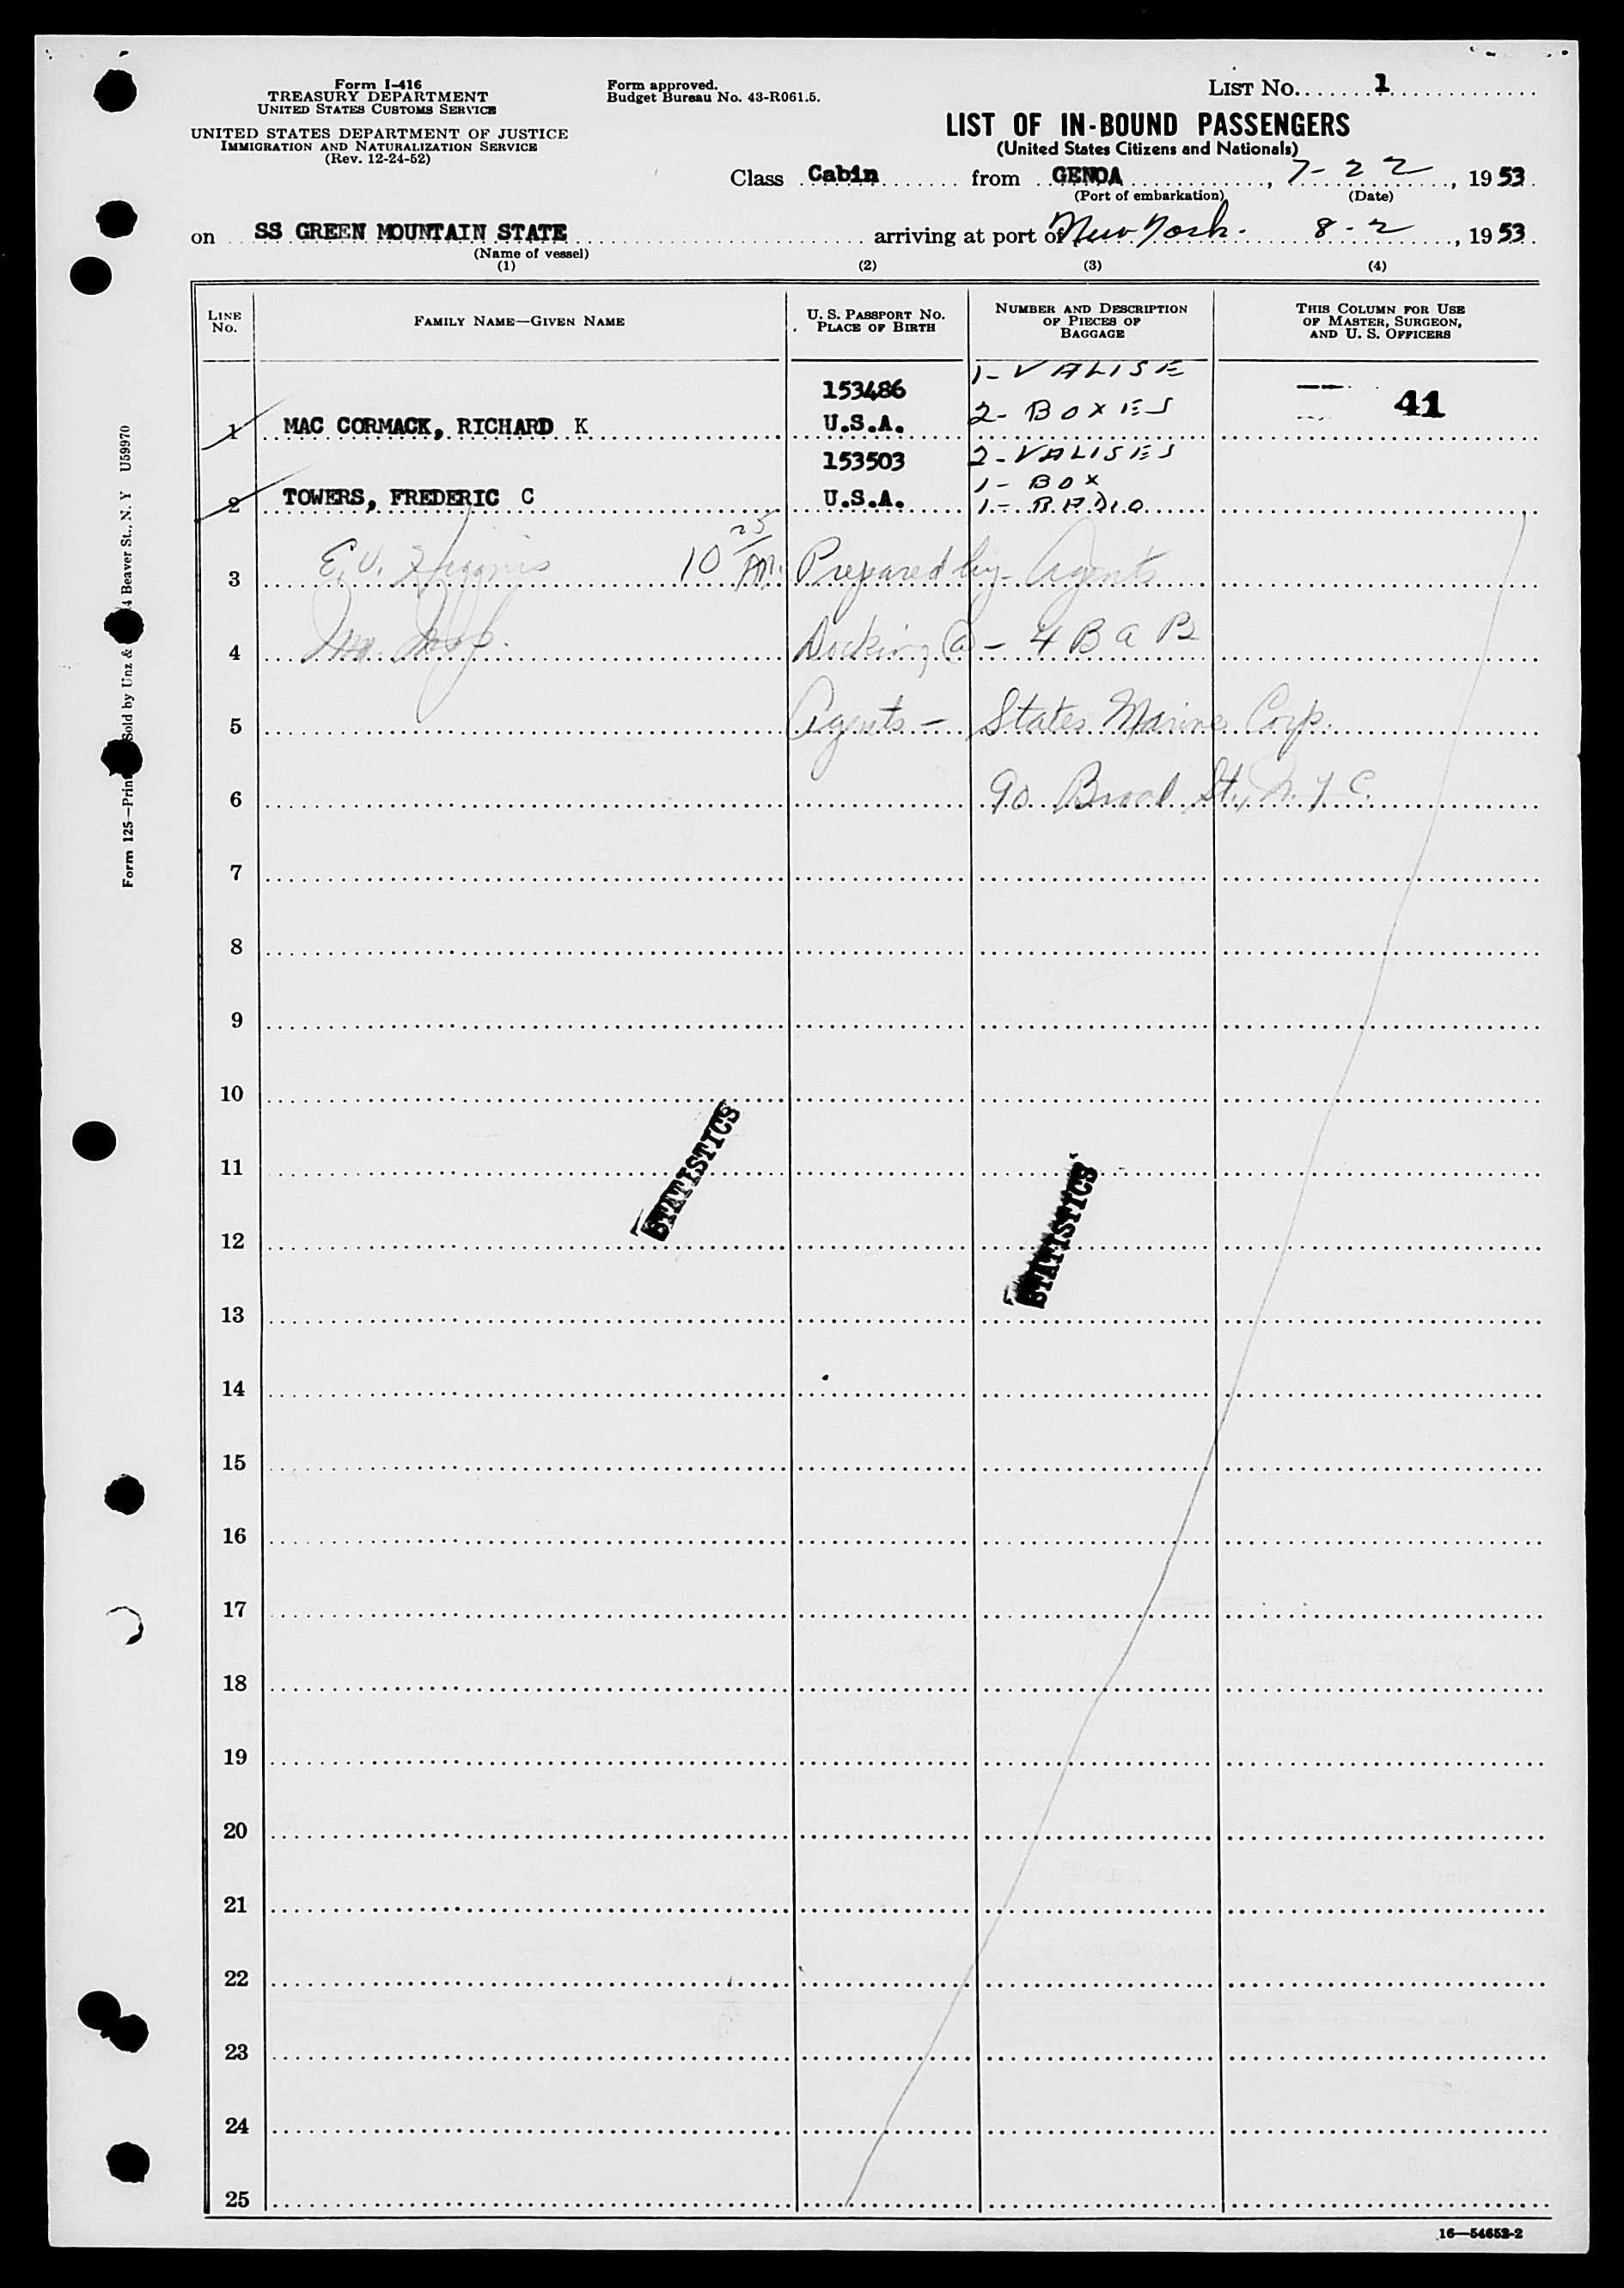 Form I-416
TREASURY DEPARTMENT
UNITED STATES CUSTOMS SERVICE
UNITED STATES DEPARTMENT OF JUSTICE
IMMIGRATION AND NATURALIZATION SERVICE
(Rev. 12-24-52)
Form approved.
Budget Bureau No. 43-R061.5.
LIST No. 1
LIST OF IN-BOUND PASSENGERS
(United States Citizens and Nationals)
Class Cabin from GENOA, 7-22, 1953.
(Port of embarkation) (Date)
on SS GREEN MOUNTAIN STATE arriving at port of New York. 8-2, 1953.
(Name of vessel)
(1) (2) (3) (4)
LINE No. FAMILY NAME—GIVEN NAME U. S. PASSPORT NO. PLACE OF BIRTH NUMBER AND DESCRIPTION OF PIECES OF BAGGAGE THIS COLUMN FOR USE OF MASTER, SURGEON, AND U. S. OFFICERS
153486 1-VALISE
1 MAC CORMACK, RICHARD K U.S.A. 2-BOXES 41
153503 2-VALISES
1-BOX
2 TOWERS, FREDERIC C U.S.A. 1-RADIO
3 E.V. Higgins 10 25 AM. Prepared by - Agents
4 Docking @ - 4 B a B
5 Agents - States Marine Corp.
6 90 Broad St., N.Y.C.
7
8
9
10
11
STATISTICS STATISTICS
12
13
14
15
16
17
18
19
20
21
22
23
24
25
16—54652-2
Form 125—Prin Sold by Unz & 4 Beaver St., N. Y U59970